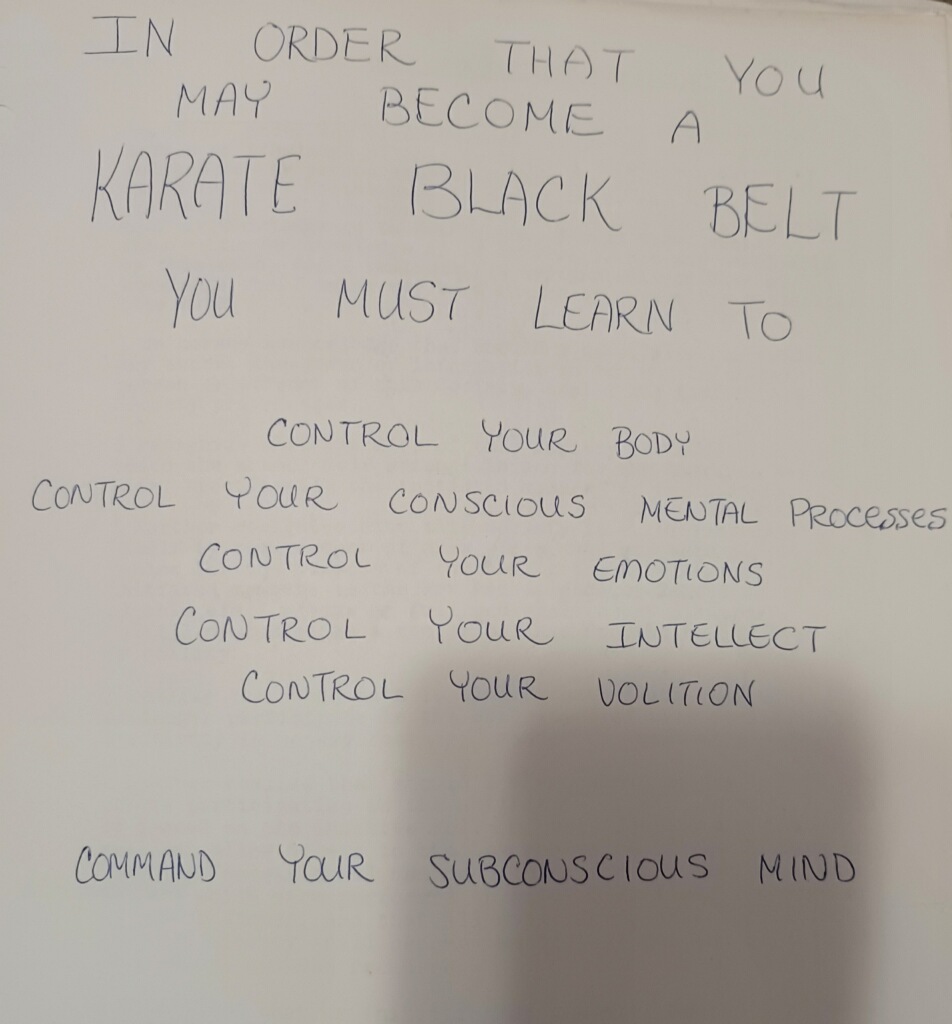 IN ORDER THAT YOU
MAY BECOME A
KARATE BLACK BELT
YOU MUST LEARN TO
CONTROL YOUR BODY
CONTROL YOUR CONSCIOUS MENTAL PROCESSES
CONTROL YOUR EMOTIONS
CONTROL YOUR INTELLECT
CONTROL YOUR VOLITION
COMMAND YOUR SUBCONSCIOUS MIND